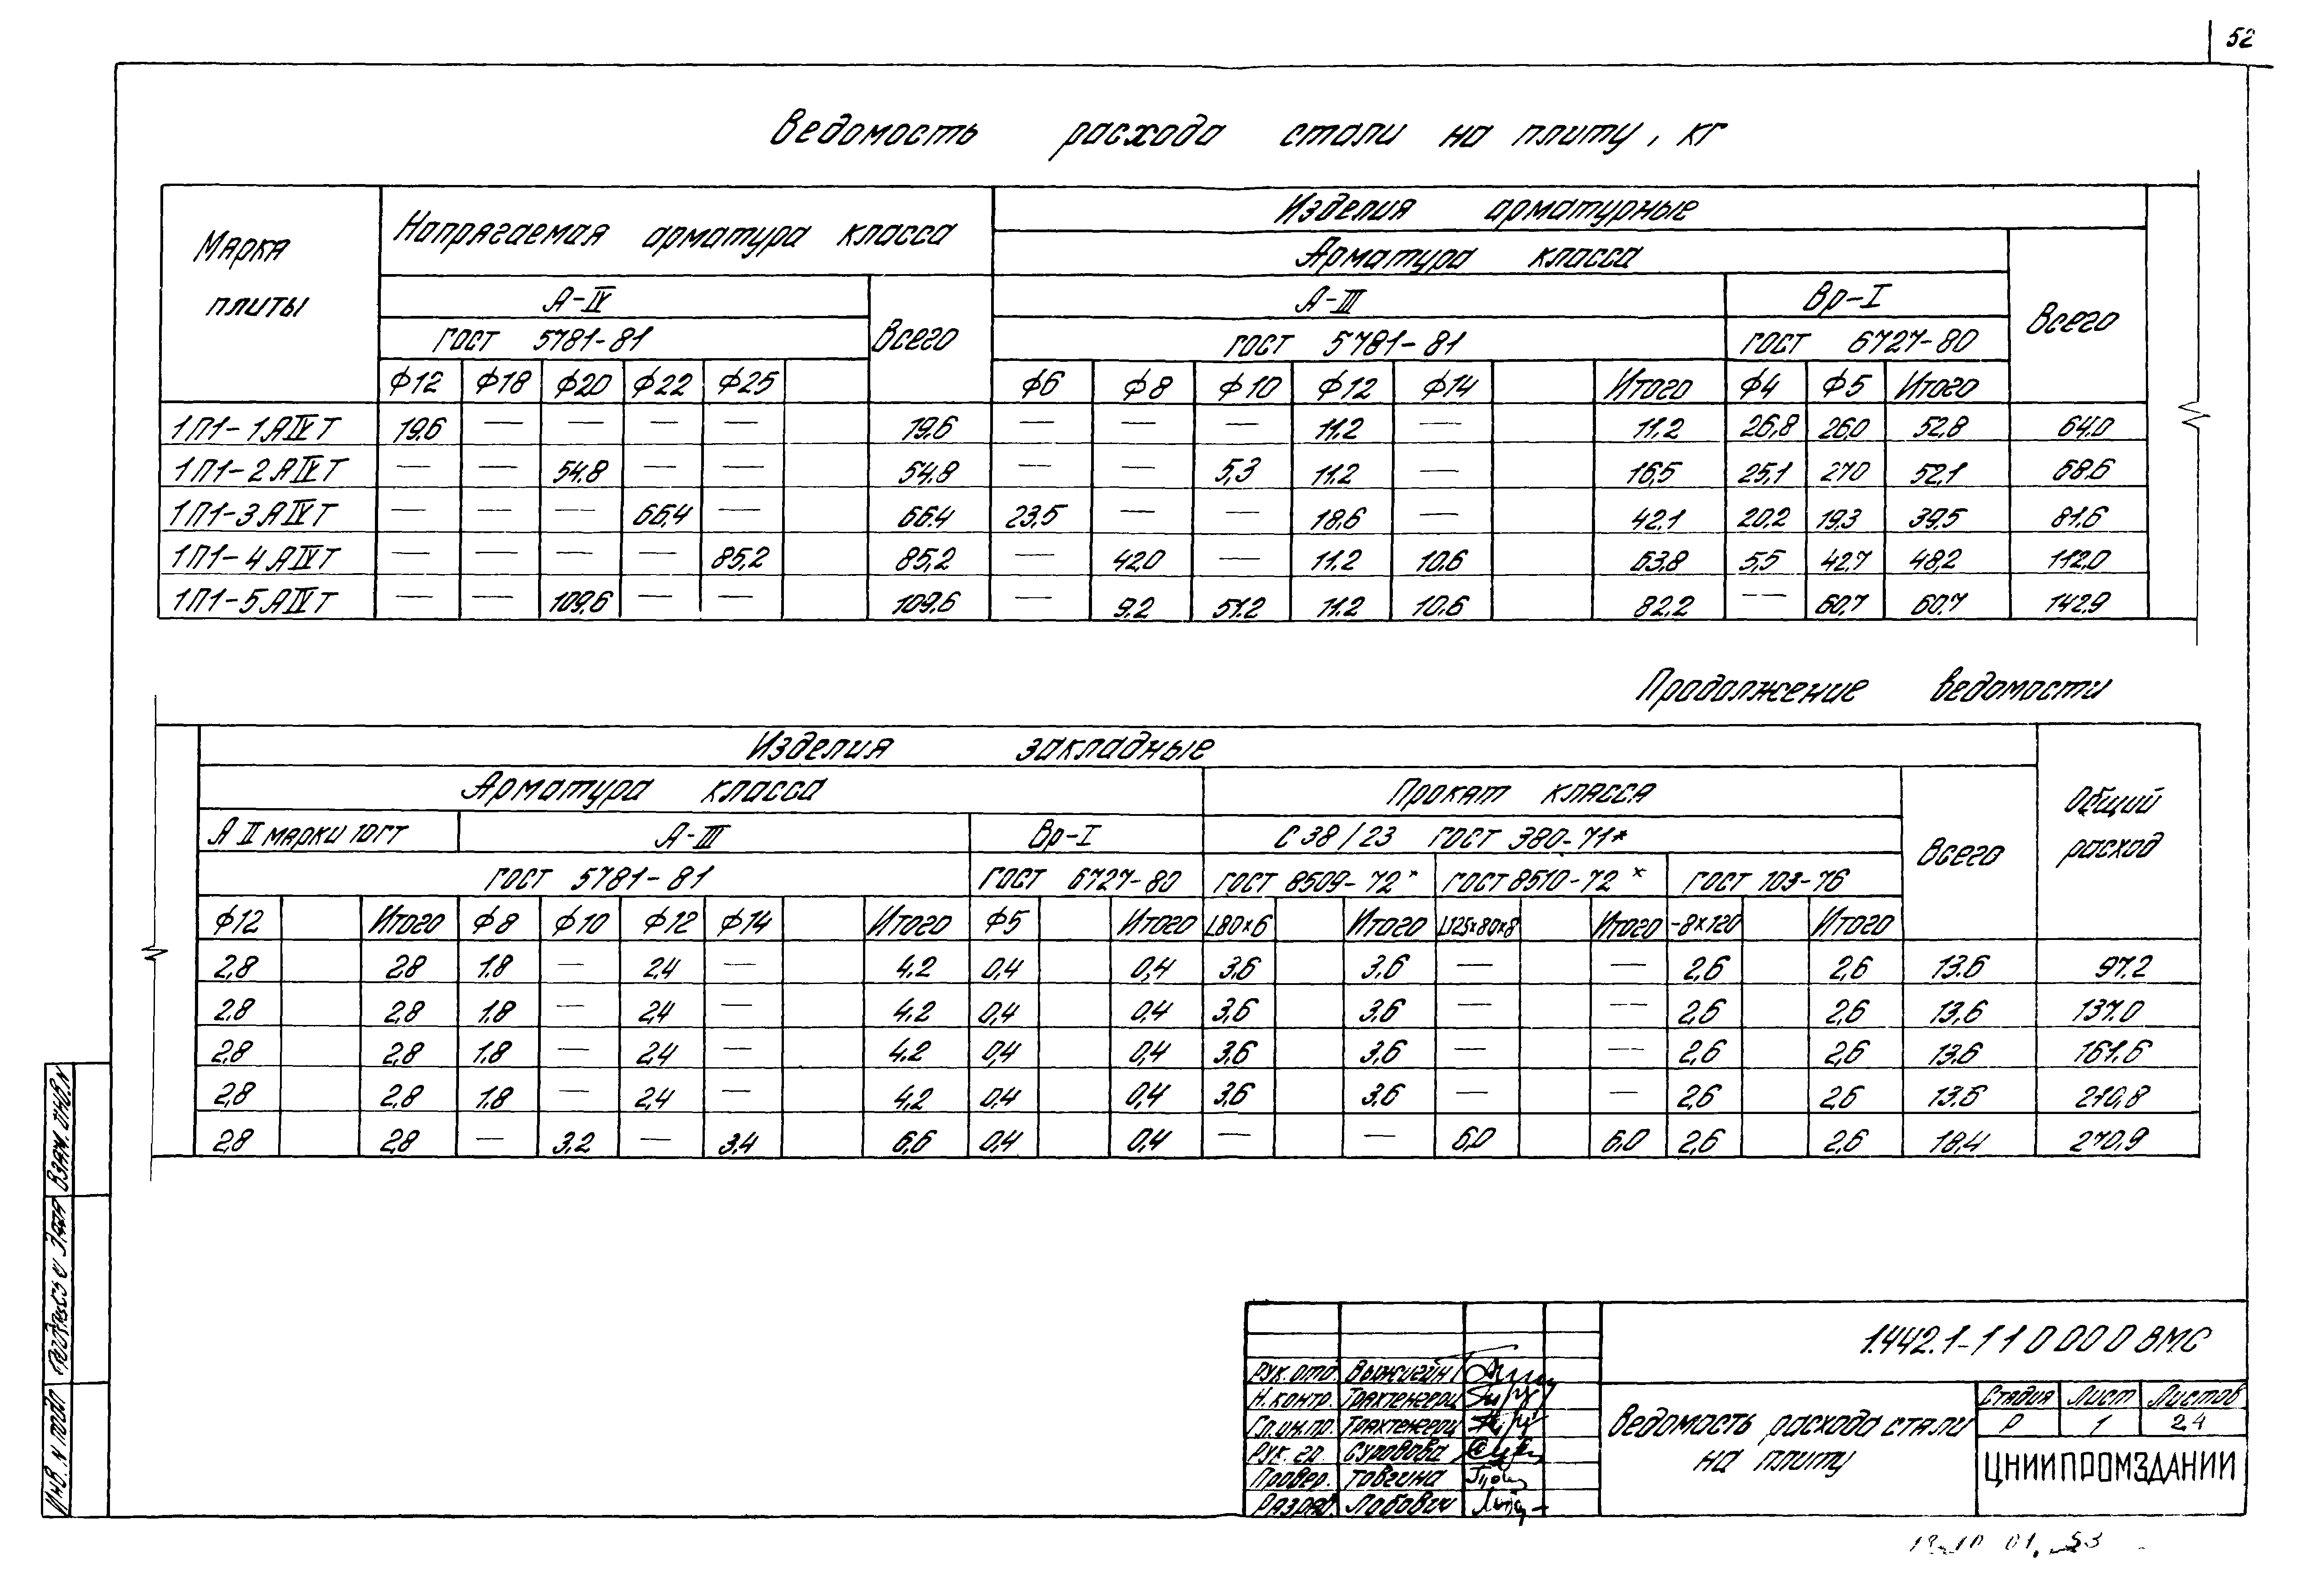 52
Ведомость расхода стали на плиту, кг
Марка плиты
Напрягаемая арматура класса
Изделия арматурные
Арматура класса
А-IV
Всего
А-III
Вр-I
Всего
ГОСТ 5781-81
ГОСТ 5781-81
ГОСТ 6727-80
Ф12 Ф18 Ф20 Ф22 Ф25 Ф6 Ф8 Ф10 Ф12 Ф14 Итого Ф4 Ф5 Итого
1П1-1АIVТ 19,6 — — — — 19,6 — — — 11.2 — 11,2 26,8 26,0 52,8 64,0
1П1-2АIVТ — — 54,8 — — 54,8 — — 5,3 11.2 — 16,5 25,1 27,0 52,1 68,6
1П1-3АIVТ — — — 66,4 — 66,4 23,5 — — 18,6 — 42,1 20,2 19,3 39,5 81,6
1П1-4АIVТ — — — — 85,2 85,2 — 42,0 — 11.2 10,6 63,8 5,5 42,7 48,2 112,0
1П1-5АIVТ — — 109,6 — — 109,6 — 9,2 51,2 11.2 10.6 82,2 — 60,7 60,7 142,9
Продолжение ведомости
Изделия закладные
Общий расход
Арматура класса
Прокат класса
Всего
А II марки 10ГТ
А-III
Вр-I
С 38/23 ГОСТ 380-71*
ГОСТ 5781-81
ГОСТ 6727-80
ГОСТ 8509-72*
ГОСТ 8510-72*
ГОСТ 103-76
Ф12 Итого Ф8 Ф10 Ф12 Ф14 Итого Ф5 Итого L80×6 Итого L125×80×8 Итого -8×120 Итого
2,8 2,8 1.8 — 2,4 — 4.2 0,4 0,4 3,6 3,6 — — 2,6 2,6 13,6 97,2
2,8 2,8 1.8 — 2,4 — 4.2 0,4 0,4 3,6 3,6 — — 2,6 2,6 13,6 137,0
2,8 2,8 1.8 — 2,4 — 4.2 0,4 0,4 3,6 3,6 — — 2,6 2,6 13,6 161,6
2,8 2,8 1.8 — 2,4 — 4,2 0,4 0,4 3,6 3,6 — — 2,6 2,6 13,6 210,8
2,8 2,8 — 3,2 — 3,4 6,6 0,4 0,4 — — 6,0 6,0 2,6 2,6 18,4 270,9
Взам. инв. N
Подпись и дата
Инв. N подл
1.442.1-1 1 0 00 0 ВМС
Рук. отд. Выжигин
Н. контр. Трахтенгерц
Гл. ин. пр. Трахтенгерц
Рук. гр. Суровова
Провер. Товгина
Разраб. Лобович
Ведомость расхода стали на плиту
Стадия Лист Листов
Р 1 24
ЦНИИПРОМЗДАНИЙ